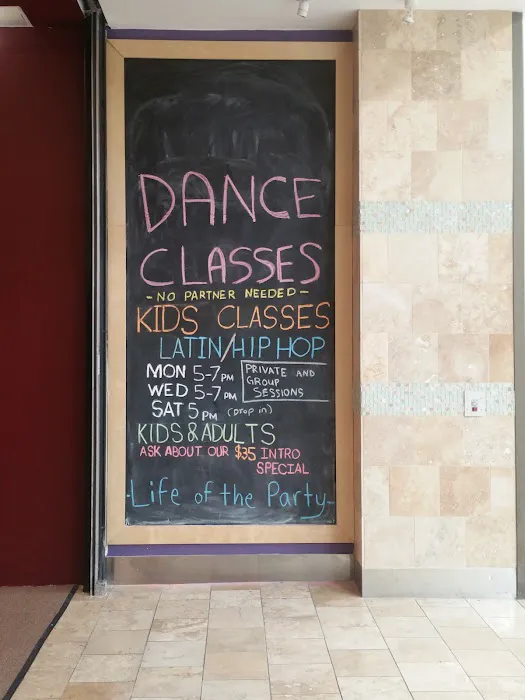 DANCE
CLASSES
- NO PARTNER NEEDED -
KIDS CLASSES
LATIN/HIP HOP
MON 5-7 PM
WED 5-7 PM
SAT 5 PM (Drop in)
PRIVATE AND
GROUP
SESSIONS
KIDS & ADULTS
ASK ABOUT OUR $35 INTRO
SPECIAL
-Life of the Party-